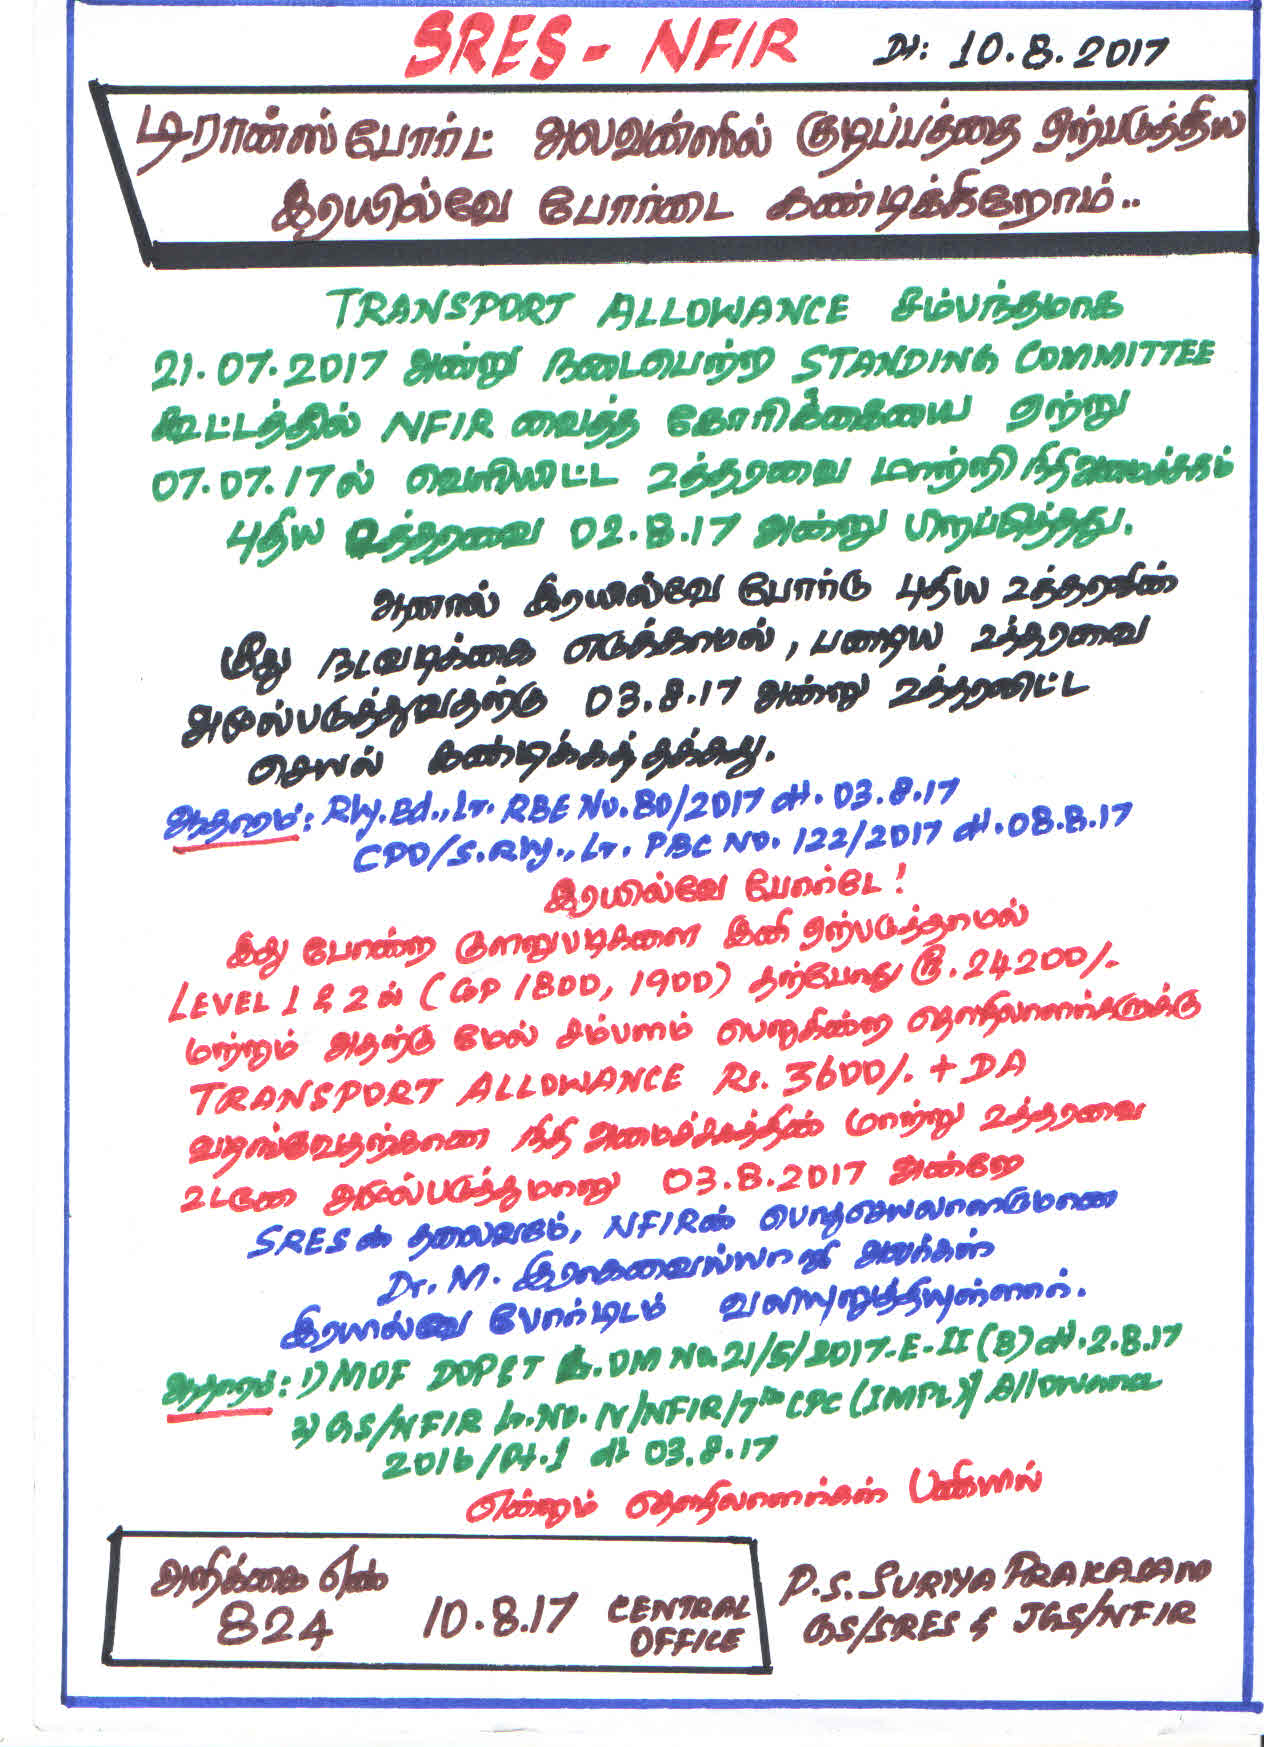 SRES - NFIR   தா: 10.8.2017
டிரான்ஸ்போர்ட் அலவன்ஸில் குழப்பத்தை ஏற்படுத்திய
இரயில்வே போர்டை கண்டிக்கிறோம்..
TRANSPORT ALLOWANCE சம்பந்தமாக
21.07.2017 அன்று நடைபெற்ற STANDING COMMITTEE
கூட்டத்தில் NFIR வைத்த கோரிக்கையை ஏற்று
07.07.17ல் வெளியிட்ட உத்தரவை மாற்றி நிதிஅமைச்சகம்
புதிய உத்தரவை 02.8.17 அன்று பிறப்பித்தது.
ஆனால் இரயில்வே போர்டு புதிய உத்தரவின்
மீது நடவடிக்கை எடுக்காமல், பழைய உத்தரவை
அமுல்படுத்துவதற்கு 03.8.17 அன்று உத்தரவிட்ட
செயல் கண்டிக்கத்தக்கது.
ஆதாரம்: Rly.Bd., Lr. RBE No.80/2017 dt. 03.8.17
CPO/S.Rly., Lr. PBC No. 122/2017 dt.08.8.17
இரயில்வே போர்டே!
இது போன்ற குளறுபடிகளை இனி ஏற்படுத்தாமல்
LEVEL 1 & 2 ல் (GP 1800, 1900) தற்போது ரூ.24200/-
மற்றும் அதற்கு மேல் சம்பளம் பெறுகின்ற தொழிலாளர்களுக்கு
TRANSPORT ALLOWANCE Rs. 3600/- + DA
வழங்குவதற்கான நிதி அமைச்சகத்தின் மாற்று உத்தரவை
உடனே அமுல்படுத்துமாறு 03.8.2017 அன்றே
SRES ன் தலைவரும், NFIRன் பொதுசெயலாளருமான
Dr. M. இராகவைய்யா ஜி அவர்கள்
இரயில்வே போர்டிடம் வலியுறுத்தியுள்ளார்.
ஆதாரம்: 1) MOF DOP&T OM No.21/5/2017-E-II (B) dt.2.8.17
2) GS/NFIR Lr.No. IV/NFIR/7th CPC (IMPL)/ Allowance
2016/Pt.1 dt 03.8.17
என்றும் தொழிலாளர்கள் பணியில்
அறிக்கை எண்
824   10.8.17   CENTRAL
OFFICE
P.S. SURIYA PRAKASAM
GS/SRES & JGS/NFIR